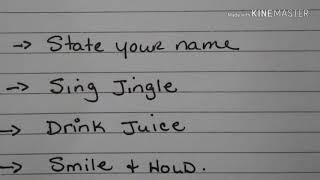 Made with KINEMASTER
-> State your name
-> Sing Jingle
-> Drink Juice
-> Smile + HOLD.